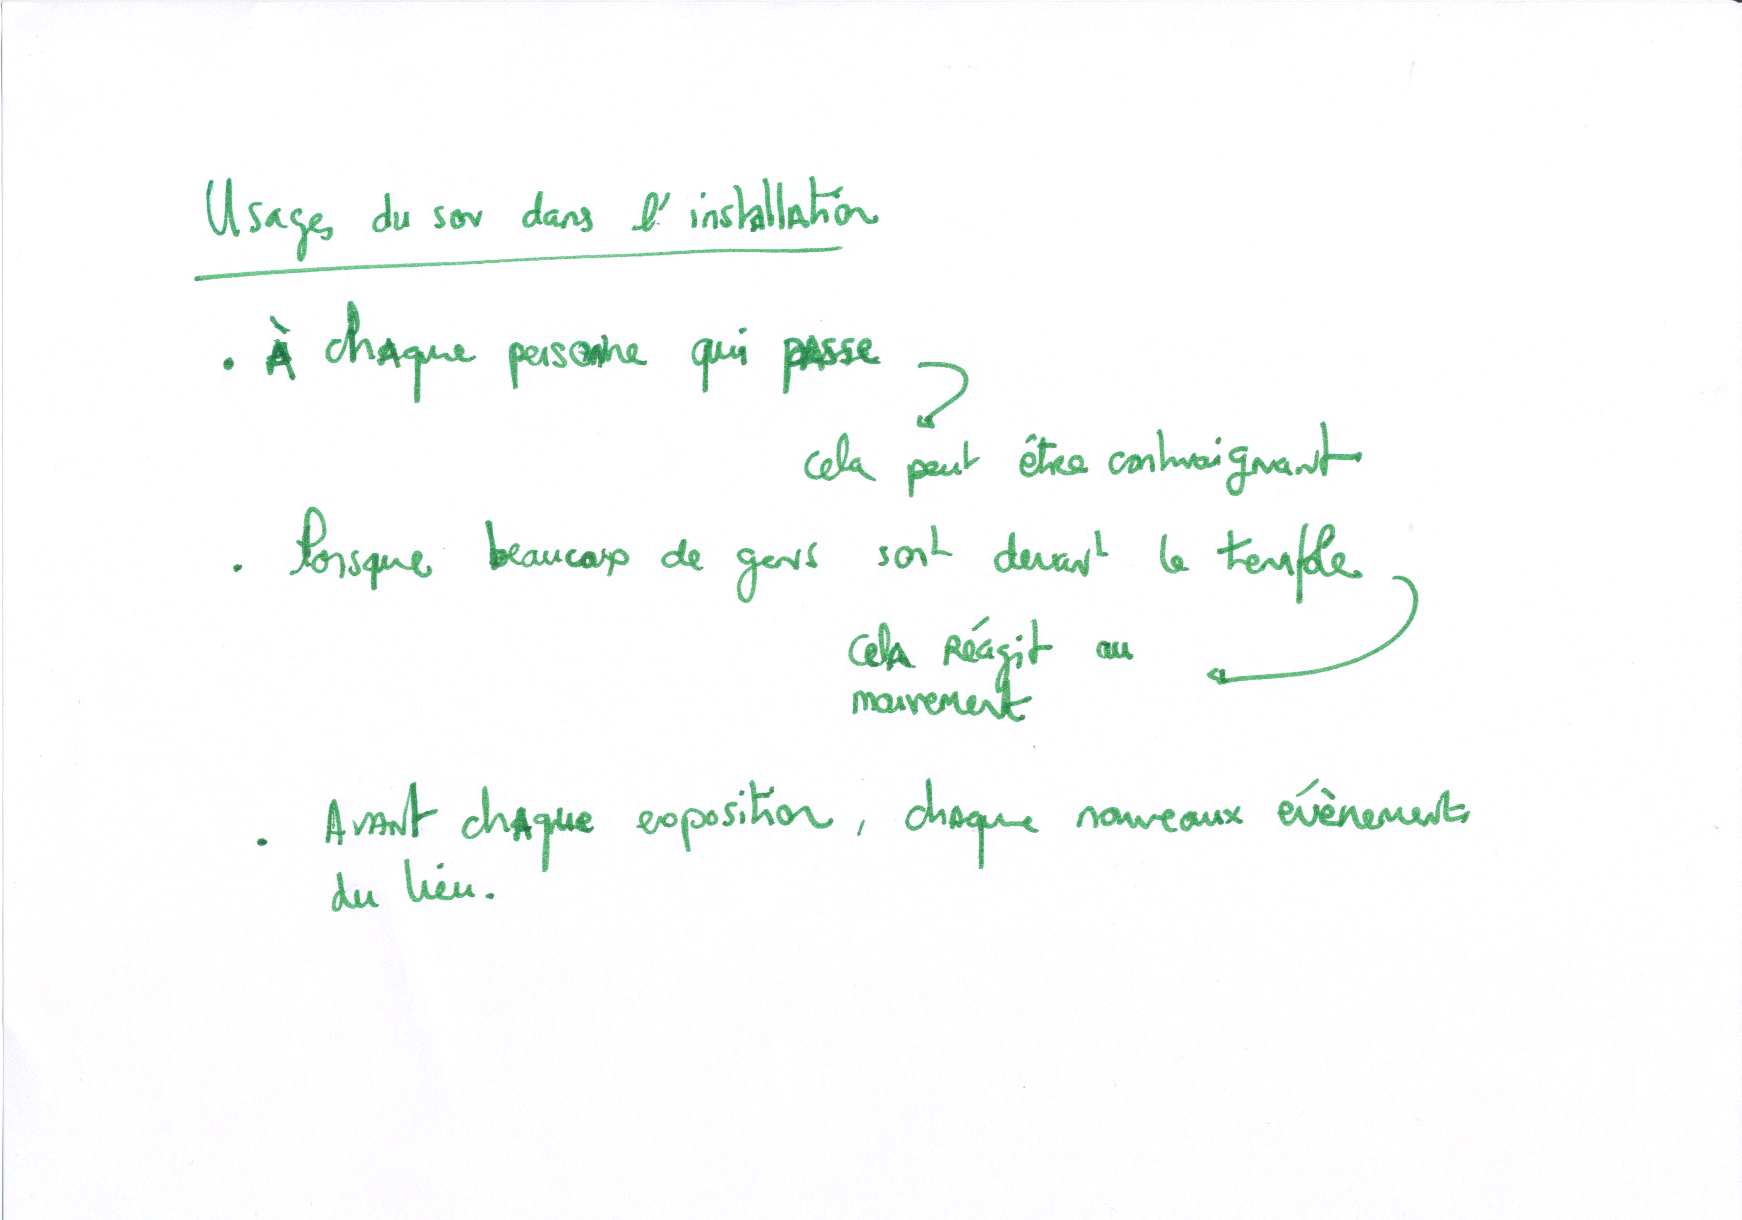 Usages du son dans l'installation
. À chaque personne qui passe
cela peut être contraignant
. lorsque beaucoup de gens sont devant le temple
cela réagit au
mouvement
. Avant chaque exposition, chaque nouveaux évènements
du lieu.